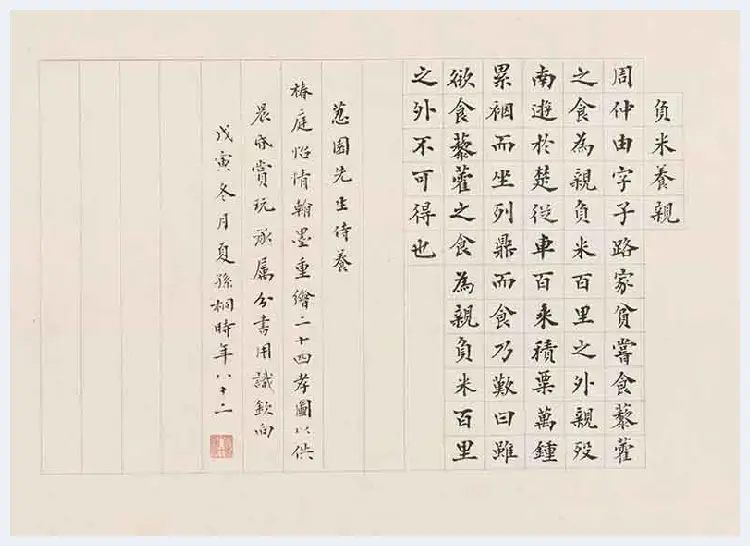 負米養親
周仲由字子路家貧嘗食藜藿
之食為親負米百里之外親歿
南遊於楚從車百乘積粟萬鍾
累裀而坐列鼎而食乃歎曰雖
欲食藜藿之食為親負米百里
之外不可得也
蔥園先生侍養
椿庭怡情翰墨重繪二十四孝圖以供
晨昏賞玩承属分書用識欽向
戊寅冬月夏孫桐時年八十二